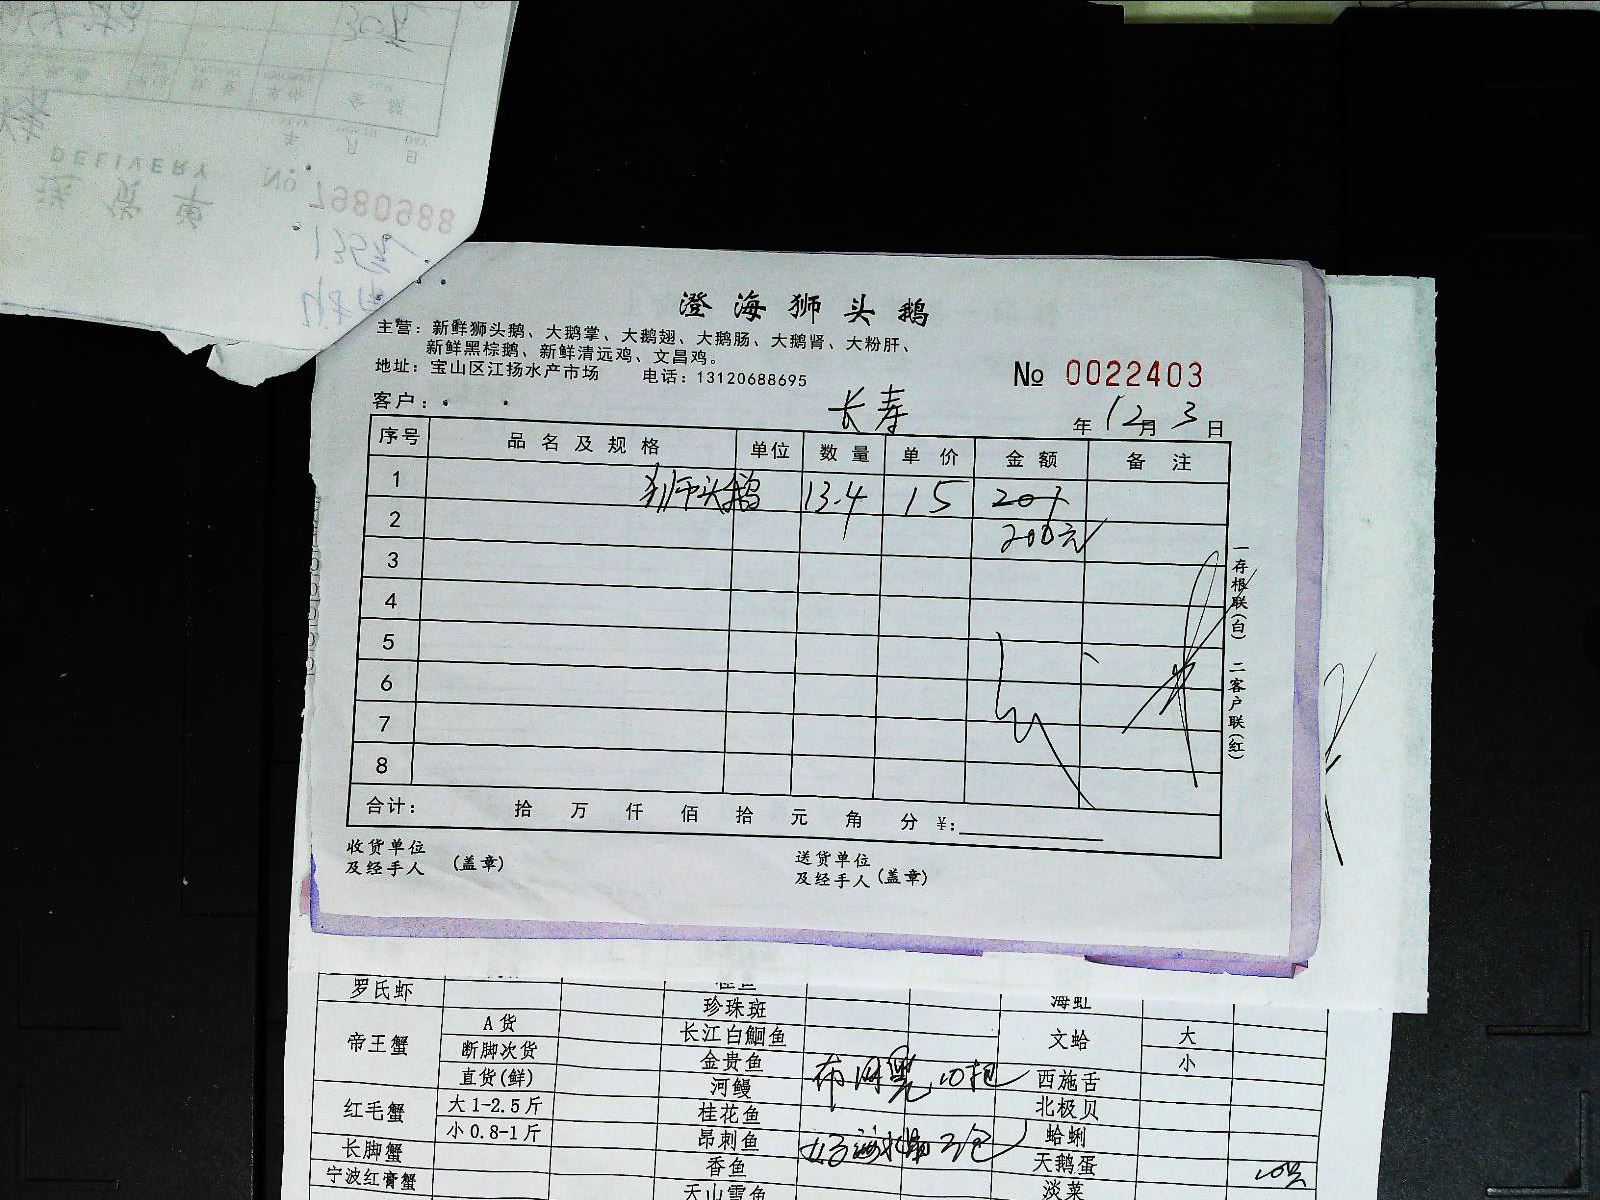 送货单
DELIVERY
No 8860867
年 月 日
澄海狮头鹅
主营：新鲜狮头鹅、大鹅掌、大鹅翅、大鹅肠、大鹅肾、大粉肝、
新鲜黑棕鹅、新鲜清远鸡、文昌鸡。
地址：宝山区江扬水产市场 电话：13120688695
No 0022403
客户： 长寿 年 12月 3日
序号 品名及规格 单位 数量 单价 金额 备注
1 狮头鹅 13.4 15 201
2 200元
3
4
5
6
7
8
合计： 拾 万 仟 佰 拾 元 角 分 ¥:
收货单位 送货单位
及经手人 (盖章) 及经手人(盖章)
一存根联(白) 二客户联(红)
罗氏虾 海虹
珍珠斑
帝王蟹 A货 长江白鮰鱼 文蛤 大
断脚次货 金贵鱼 小
直货(鲜) 河鳗 西施舌
红毛蟹 大1-2.5斤 桂花鱼 北极贝
小0.8-1斤 昂刺鱼 蛤蜊
长脚蟹 香鱼 天鹅蛋
宁波红膏蟹 天山雪鱼 淡菜